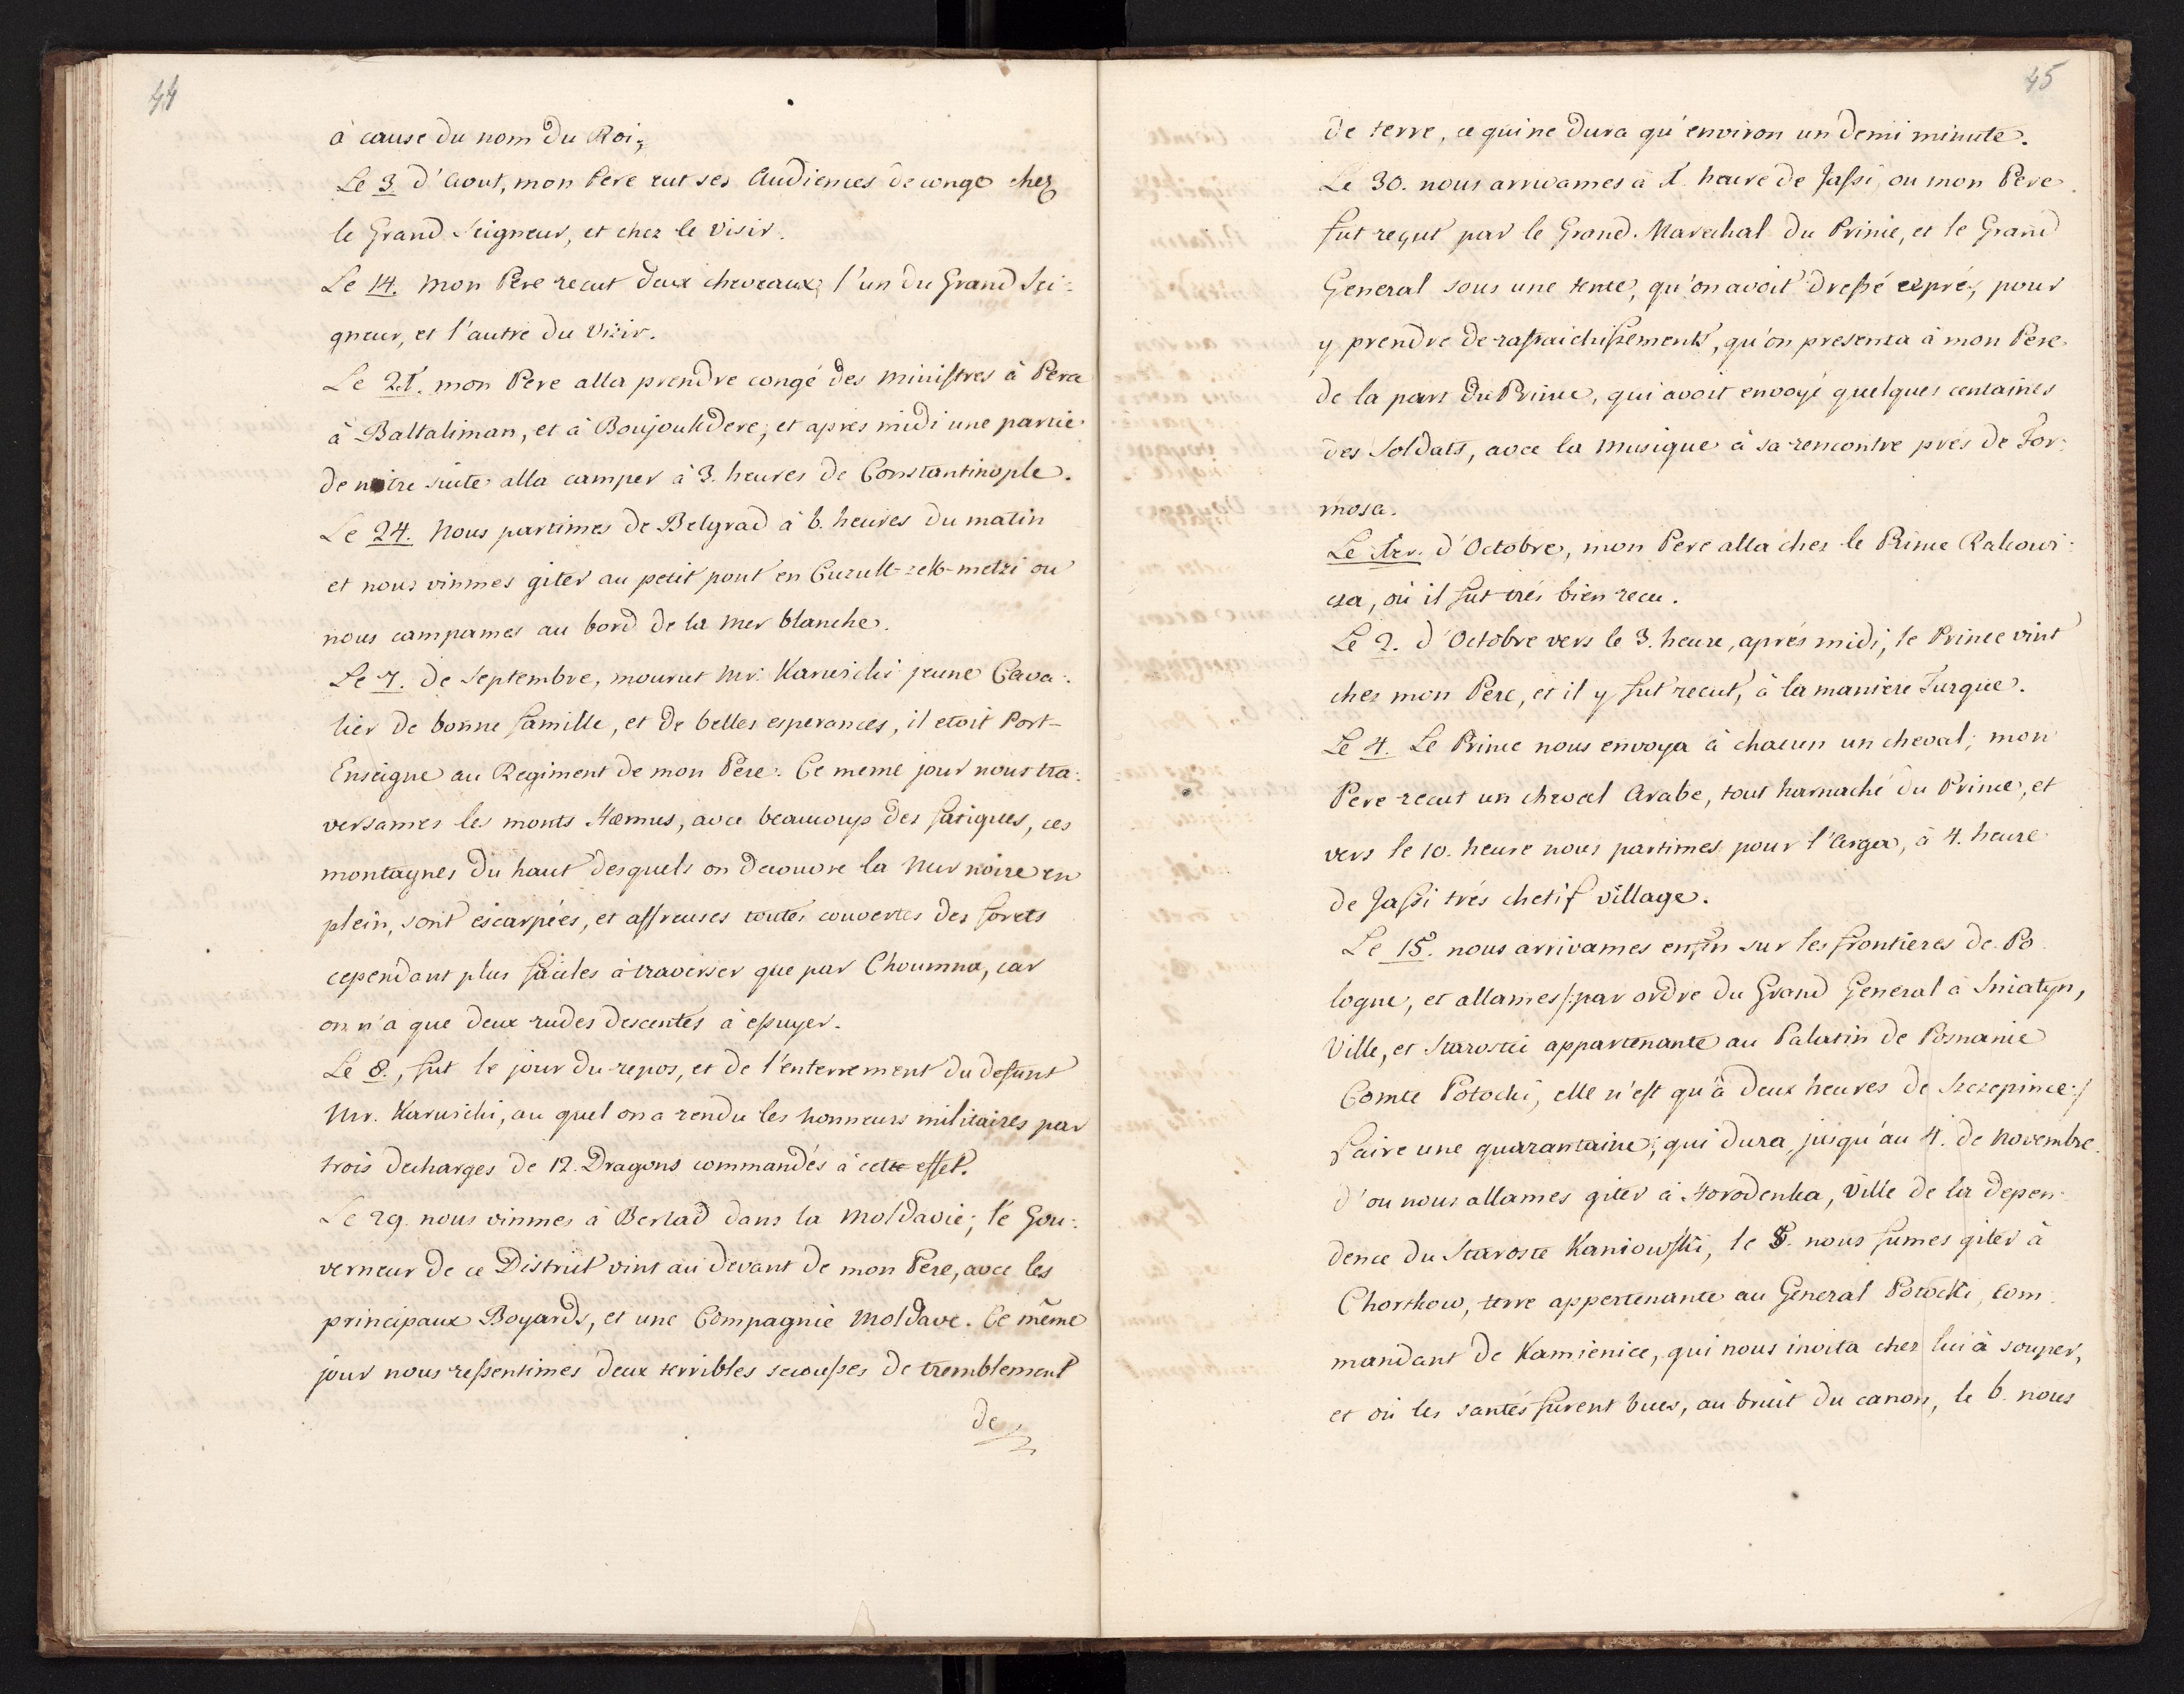 44
à cause du nom du Roi;
Le 3 d'Aout, mon Pere eut ses Audiences de congo chez
le Grand Seigneur, et chez le Visir.
Le 14. mon Pere recut deux cheveaux; l'un du Grand Sei:
gneur, et l'autre du Visir.
Le 21. mon Pere alla prendre congé des ministres à Pera
à Baltaliman, et à Boujoukdere; et apres midi une partie
de nôtre suite alla camper à 3. heures de Constantinople.
Le 24. Nous partimes de Belgrad à 6. heures du matin
et nous vinmes giter au petit pont en ou
nous campames au bord de la mer blanche.
Le 7. de Septembre, mourut Mr. Karwicki jeune Cava:
lier de bonne famille, et de belles esperances, il etoit Port-
Enseigne au Regiment de mon Pere. Ce meme jour nous tra:
versames les monts Hæmus, avec beaucoup des fatiques, ces
montagnes du haut desquels on decouvre la Mer noire en
plein, sont escarpées, et affreuses toutes couvertes des forets
cependant plus faciles à traverser que par Choumna, car
on n'a que deux rudes descentes à essuyer.
Le 8., fut le jour du repos, et de l'enterrement du defunt
Mr. Karwicki, au quel on a rendu les honneurs militaires par
trois decharges de 12. Dragons commandés à cette effet.
Le 29. nous vinmes à Berlad dans la Moldavie; le Gou:
verneur de ce District vint au devant de mon Pere, avec les
principaux Boyards, et une Compagnie Moldave. Ce même
jour nous ressentimes deux terribles secousses de tremblement
de
45
de terre, ce qui ne dura qu'environ un demi minute.
Le 30. nous arrivames à 1. heure de Jassi, ou mon Pere
fut reçut par le Grand Marechal du Prince, et le Grand
General sous une tente, qu'on avoit dressé exprés, pour
y prendre de rafraichissements, qu'on presenta à mon Pere
de la part du Prince, qui avoit envoyé quelques centaines
des Soldats, avec la musique à sa rencontre prés de For:
mosa.
Le 1er. d'Octobre, mon Pere alla chez le Prince Rakowi:
cza, où il fut trés bien recu.
Le 2. d'Octobre vers le 3. heure, aprés midi, le Prince vint
chez mon Pere, et il y fut recut, à la maniere Turque.
Le 4. Le Prince nous envoya à chacun un cheval; mon
Pere recut un cheval Arabe, tout harnaché du Prince, et
vers le 10. heure nous partimes pour l'Arga, à 4. heure
de Jassi trés chetif village.
Le 15. nous arrivames enfin sur les frontieres de Po
logne, et allames /:par ordre du Grand General à Sniatyn,
Ville, et Starostie appartenante au Palatin de Posnanie
Comte Potocki, elle n'est qu'à deux heures de Szczepince:/
faire une quarantaine, qui dura jusqu'au 4. de Novembre.
d'ou nous allames giter à Horodenka, Ville de la depen
dence du Staroste Kaniowski, le 5. nous fumes giter à
Chortkow, terre appertenante au General Potocki, com
mandant de Kamienice, qui nous invita chez lui à souper,
et où les santés furent bues, au bruit du canon, le 6. nous